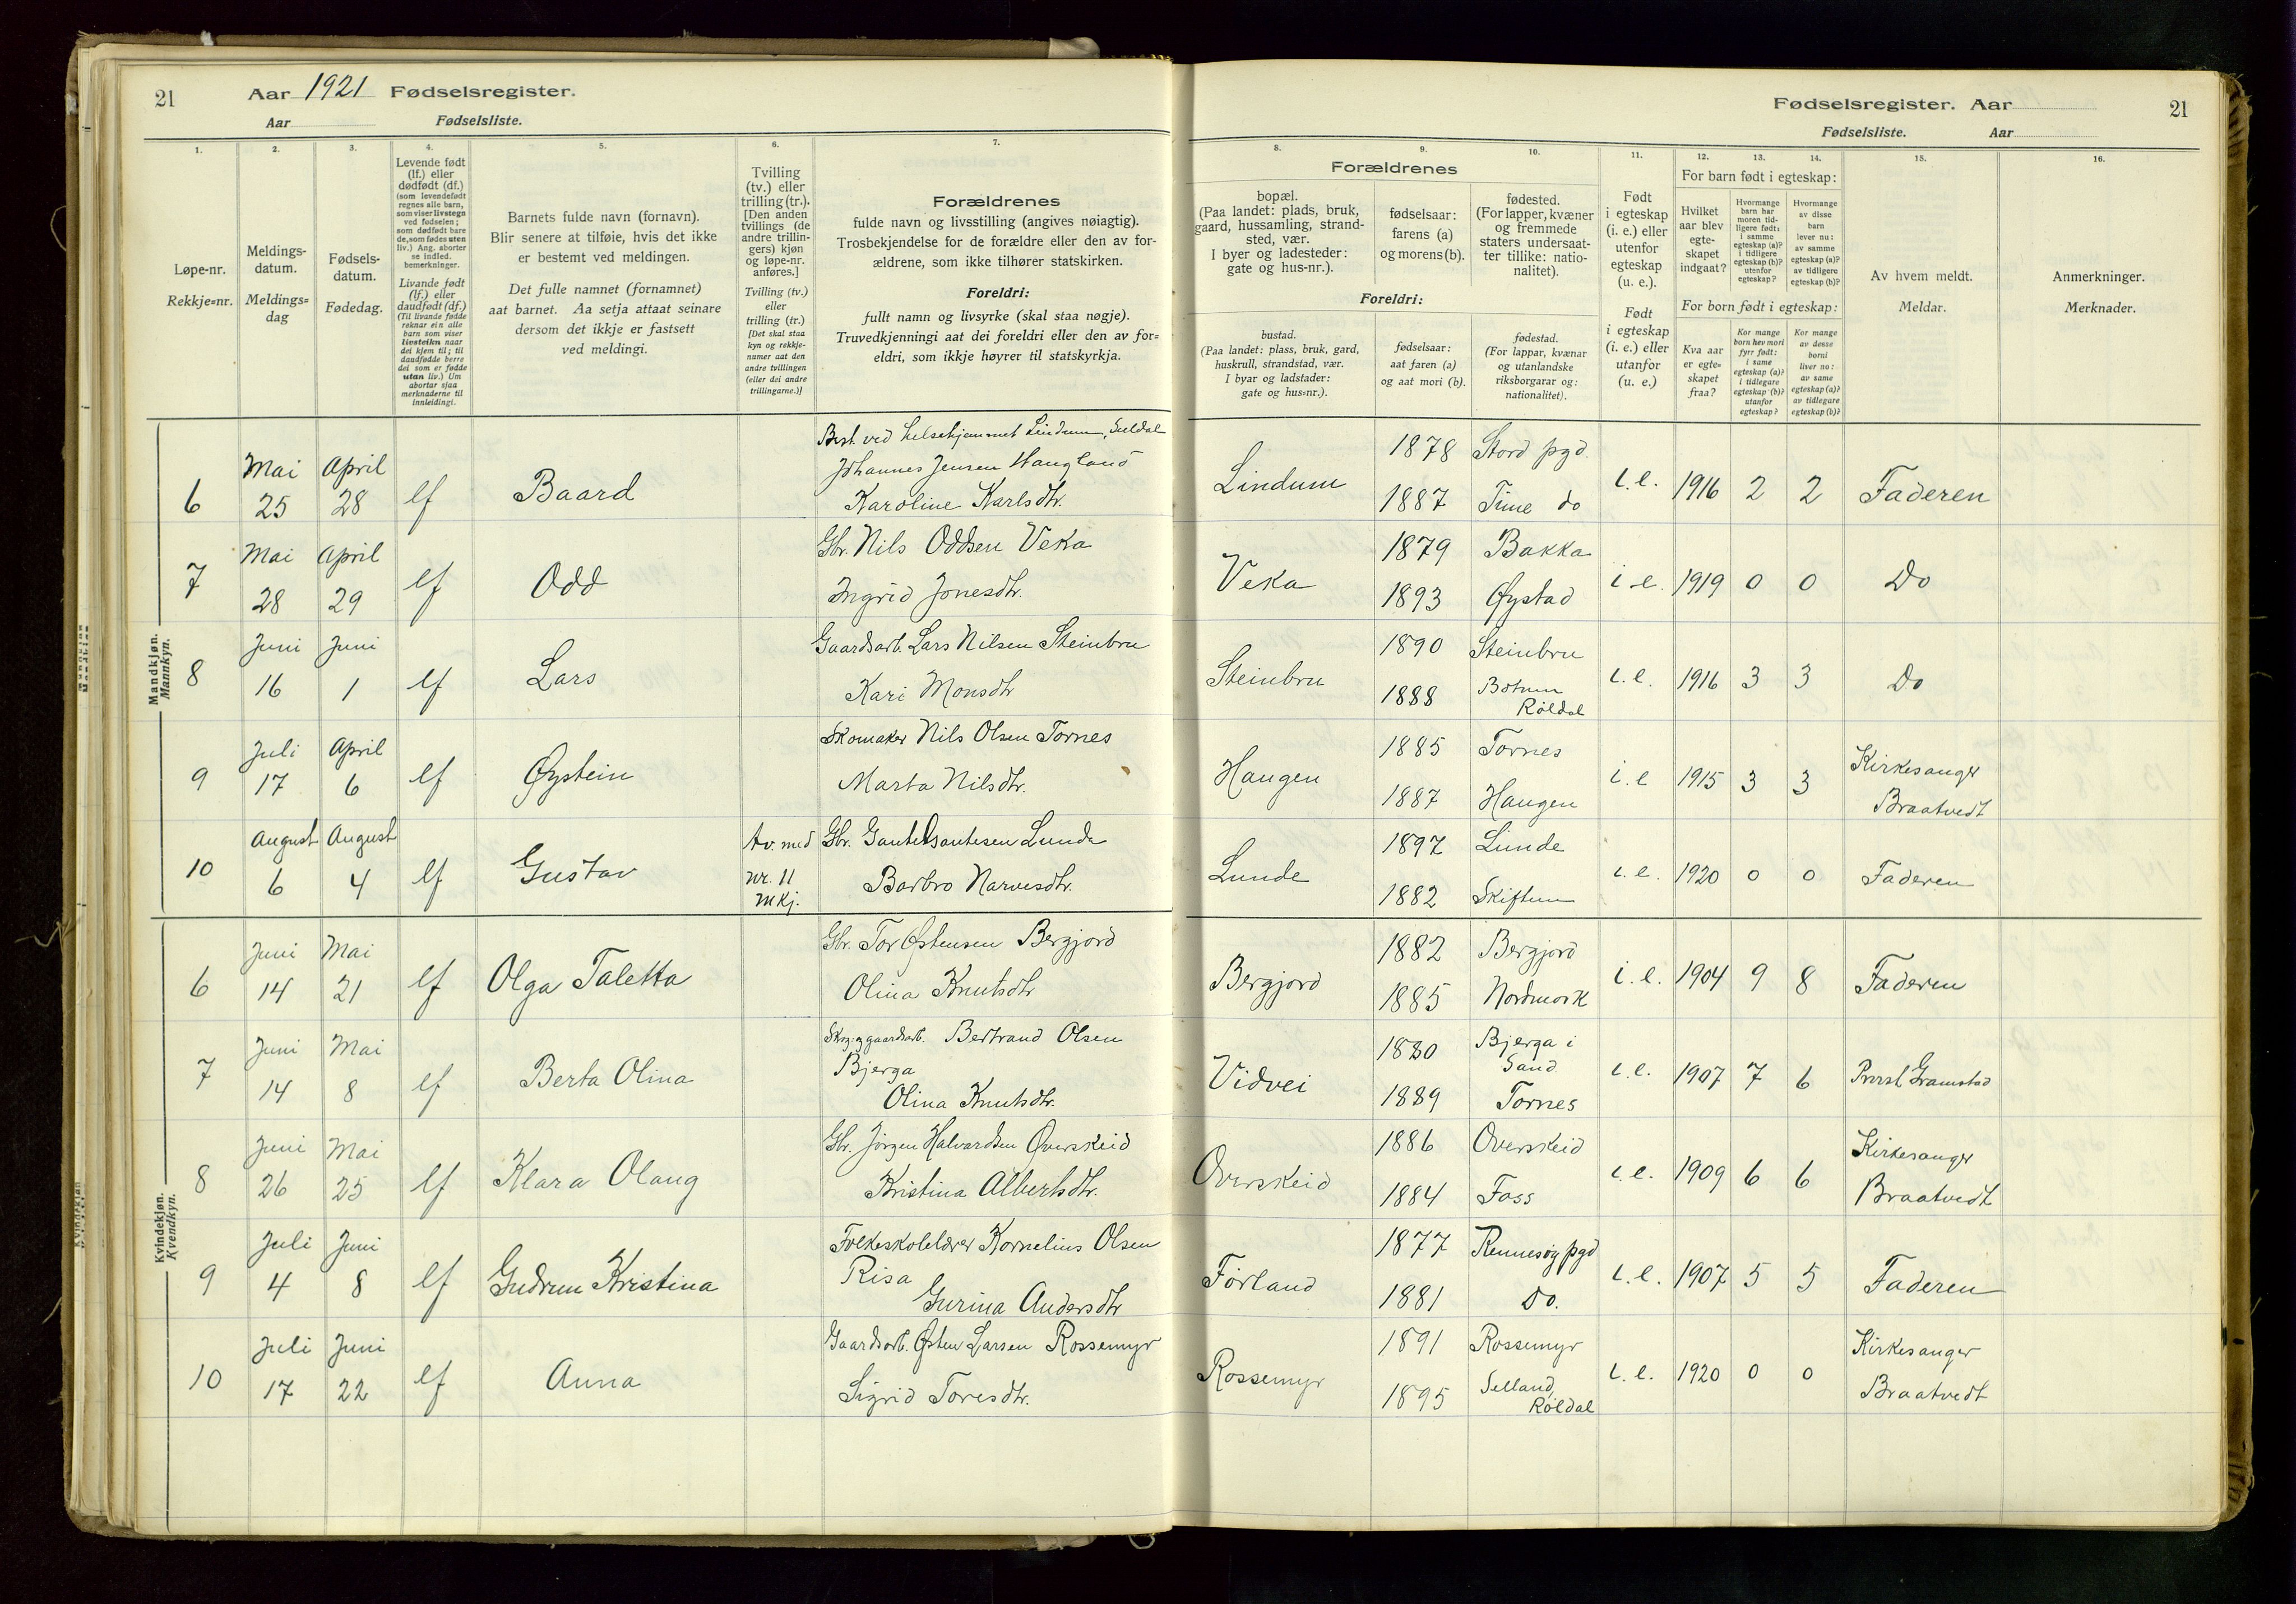 21 Aar 1921 Fødselsregister.
Aar Fødselsliste.
1.
Løpe-nr.
Rekkje=nr.
2.
Meldings-
datum.
Meldings=
dag
3.
Fødsels-
datum.
Fødedag.
4.
Levende født
(lf.) eller
dødfødt (df.)
(som levendefødt
regnes alle barn,
som viser livstegn
ved fødselen;
som dødfødt bare
de, som fødes uten
liv.) Ang. aborter
se indled.
bemerkninger.
Livande født
(lf.) eller
daudfødt (df.)
(Til livande fødde
reknar ein alle
barn som viser
livsteikn naar
dei kjem til; til
daudfødde berre
dei som er fødde
utan liv.) Um
abortar sjaa
merknaderne til
innleidingi.
5.
Barnets fulde navn (fornavn).
Blir senere at tilføie, hvis det ikke
er bestemt ved meldingen.
Det fulle namnet (fornamnet)
aat barnet. Aa setja attaat seinare
dersom det ikkje er fastsett
ved meldingi.
6.
Tvilling
(tv.) eller
trilling (tr.).
[Den anden
tvillings (de
andre trillin-
gers) kjøn
og løpe-nr.
anføres.]
Tvilling (tv.)
eller
trilling (tr.)
[Det skal staa
kyn og rekkje-
numer aat den
andre tvillingen
(eller dei andre
trillingarne.)]
7.
Forældrenes
fulde navn og livsstilling (angives nøiagtig).
Trosbekjendelse for de forældre eller den av for-
ældrene, som ikke tilhører statskirken.
Foreldri:
fullt namn og livsyrke (skal staa nøgje).
Truvedkjenningi aat dei foreldri eller den av for=
eldri, som ikkje høyrer til statskyrkja.
Mandkjøn.
Mannkyn.
Best. ved helsehjemmet Lindum, Suldal
6 Mai 25 April 28 lf Baard Johannes Jensen Haugland
Karoline Karlsdtr.
7 Mai 28 April 29 lf Odd Gbr. Nils Oddsen Veka
Ingrid Jonesdtr.
8 Juni 16 Juni 1 lf Lars Gaardsarb. Lars Nilsen Steinbru
Kari Monsdtr
9 Juli 17 April 6 lf Øystein Skomaker Nils Olsen Tornes
Marta Nilsdtr.
10 August 6 August 4 lf Gustav tv. med nr. 11 mkj. Gbr. Gaute Gautesen Lunde
Barbro Narvesdtr.
Kvindekjøn.
Kvendkyn.
6 Juni 14 Mai 21 lf Olga Taletta Gbr. Tor Østensen Bergjord
Olina Knutsdtr
7 Juni 14 Mai 8 lf Berta Olina Skog. og gaardsarb. Bertrand Olsen
Bjerga
Olina Knutsdtr.
8 Juni 26 Mai 25 lf Klara Olaug Gbr. Jørgen Halvardsen Overskeid
Kristina Albertsdtr.
9 Juli 4 Juni 8 lf Gudrun Kristina Folkeskolelærer Kornelius Olsen
Risa
Gurina Andersdtr
10 Juli 17 Juni 22 lf Anna Gaardsarb. Østen Larsen Rossemyr
Sigrid Toresdtr.
Fødselsregister. Aar 21
Fødselsliste. Aar
Forældrenes
8.
bopæl.
(Paa landet: plads, bruk,
gaard, hussamling, strand-
sted, vær.
I byer og ladesteder:
gate og hus-nr.).
9.
fødselsaar:
farens (a)
og morens (b).
10.
fødested.
(For lapper, kvæner
og fremmede
staters undersaat-
ter tillike: natio-
nalitet).
Foreldri:
bustad.
(Paa landet: plass, bruk, gard,
huskrull, strandstad, vær.
I byar og ladstader:
gate og hus=nr.).
fødselsaar:
aat faren (a)
og aat mori (b).
fødestad.
(For lappar, kvænar
og utanlandske
riksborgarar og:
nationalitet).
11.
Født
i egteskap
(i. e.) eller
utenfor
egteskap
(u. e.).
Født
i egteskap
(i. e.) eller
utanfor
(u. e.)
For barn født i egteskap:
12.
Hvilket
aar blev
egte-
skapet
indgaat?
13.
Hvormange
barn har
moren tid-
ligere født:
i samme
egteskap (a)?
i tidligere
egteskap (b)?
utenfor
egteskap?
14.
Hvormange
av disse
barn
lever nu:
av samme
egteskap (a)?
av tidligere
egteskap (b)?
For born født i egteskap:
Kva aar
er egte=
skapet
fraa?
Kor mange
born hev mori
fyrr født:
i same
egteskap (a)?
i tidlegare
egteskap (b)?
utanfor
egteskap?
Kor mange
av desse
borni
liver no:
av same
egteskap (a)?
av tidlegare
egteskap (b)?
15.
Av hvem meldt.
Meldar.
16.
Anmerkninger.
Merknader.
Lindum 1878 Stord pgd. i.e. 1916 2 2 Faderen
1887 Time do
Veka 1879 Bakka i.e. 1919 0 0 Do
1893 Øystad
Steinbru 1890 Steinbru i.e. 1916 3 3 Do
1888 Botnen
Røldal
Haugen 1885 Tornes i.e 1915 3 3 Kirkesanger
1887 Haugen Braatvedt
Lunde 1897 Lunde i.e. 1920 0 0 Faderen
1882 Skiftun
Bergjord 1882 Bergjord i.e. 1904 9 8 Faderen
1885 Nordmork
Vidvei 1880 Bjerga i
Sand i.e. 1907 7 6 Prost Gramstad
1889 Tornes
Overskeid 1886 Overskeid i.e. 1909 6 6 Kirkesanger
1884 Foss Braatvedt
Førland 1877 Rennesøy pgd i.e. 1907 5 5 Faderen
1881 Do.
Rossemyr 1891 Rossemyr i.e. 1920 0 0 Kirkesanger
1895 Selland,
Røldal Braatvedt